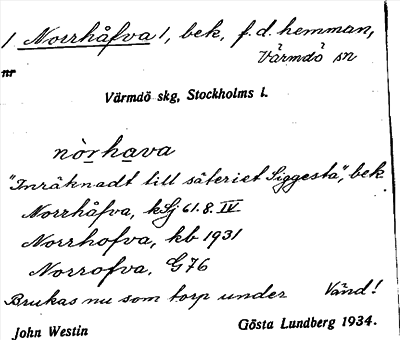 1 Norrhåfva 1, bek. f. d. hemman,
Värmdö sn
nr
Värmdö skg, Stockholms l.
nòrhava
"Inräknadt till säteriet Siggesta", bek
Norrhåfva, kSj 61. 8. IV
Norrhofva, kb 1931
Norrofva. G76
Brukas nu som torp under Vänd!
John Westin Gösta Lundberg 1934.